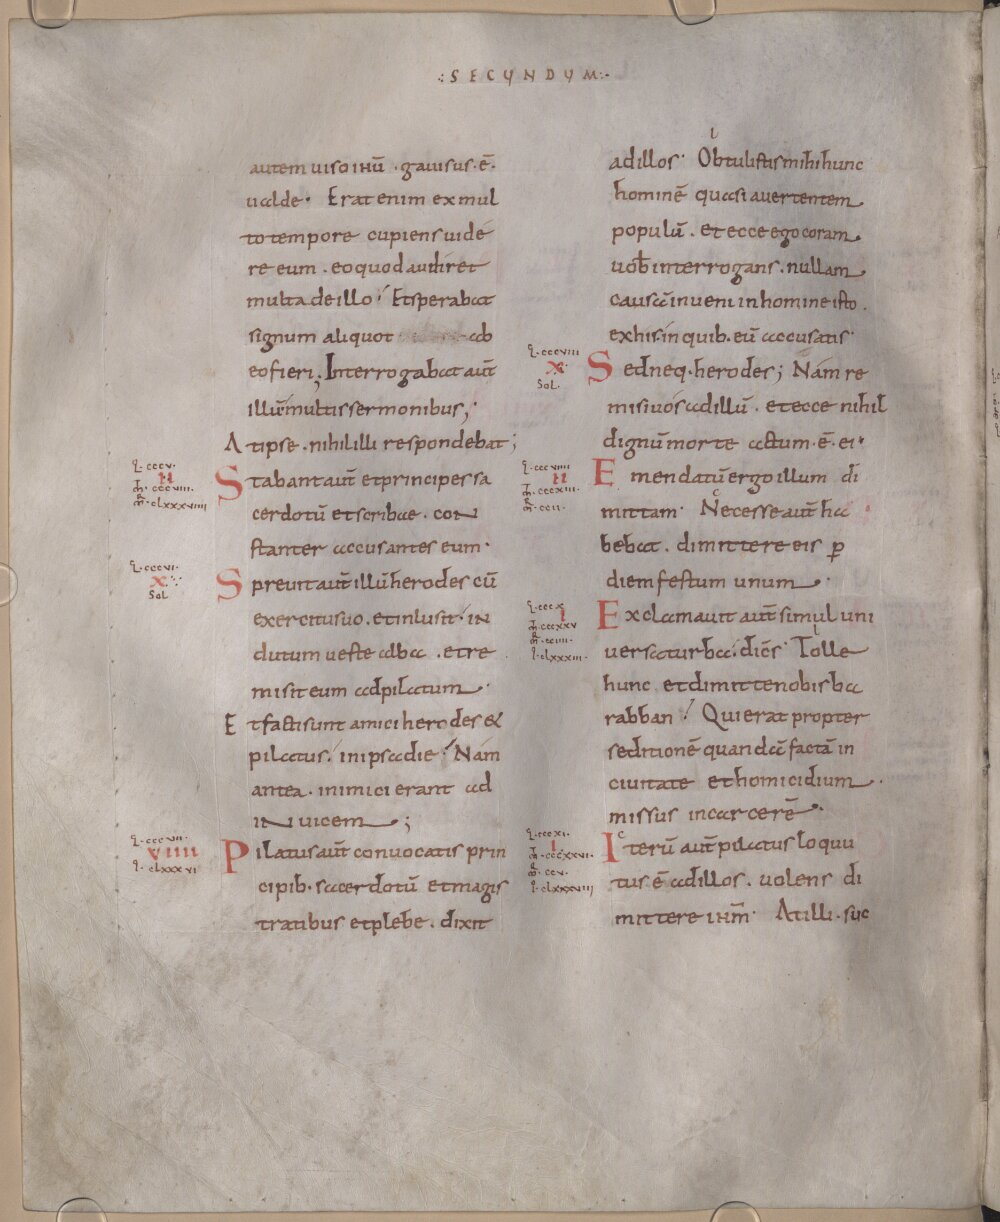 :SECUNDUM:
autem uiso ihū . gauisus . ē .
ualde . Erat enim ex mul
to tempore cupiens uide
re eum . eo quod audiret
multa de illo . Et sperabat
signum aliquot ab
eo fieri ; Interrogabat aūt
illū multis sermonibus ;
At ipse . nihil illi respondebat ;
L . cccv .
II
Stabant aūt et principes sa
cerdotū et scribae . con
stanter accusantes eum .
L . cccvi .
X
Sol
Spreuit aūt illū herodes cū
exercitu suo . et inlusit . in
dutum ueste alba . et re
misit eum ad pilatum .
Et facti sunt amici herodes &
pilatus . in ipsa die . Nam
antea . inimici erant ad
inuicem ;
L . cccvii .
VIIII
I . clxxxvi
Pilatus aūt conuocatis prin
cipib . sacerdotū et magis
tratibus et plebe . dixit
ad illos . Obtulistis mihi hunc
hominē quasi auertentem
populū . et ecce ego coram
uob interrogans . nullam
causā inueni in homine isto .
ex his . in quib . eū accusatis .
L . cccviii
X
Sol .
Sed neq . herodes ; Nam re
misi uos ad illū . et ecce nihil
dignū morte actum . ē . ei .
L . cccviiii
II
M . cccxiii .
M . ccii .
Emendatū ergo illum di
mittam . Necesse aūt ha
bebat . dimittere eis p
diem festum unum .
L . cccx
I
M . cccxxv
M . cciiii .
I . clxxxiii .
Exclamauit aūt simul uni
uersa turba . dicēs . Tolle
hunc et dimitte nobis ba
rabban . Qui erat propter
seditionē quandā factā in
ciuitate et homicidium .
missus in carcerē .
L . cccxi .
I
M . cccxxvi .
M . ccv .
I . clxxxviii
Iterū aūt pilatus loquu
tus . ē ad illos . uolens di
mittere ihm̄ . At illi . suc